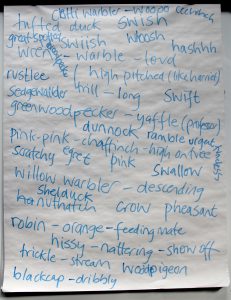 Cetti warbler - whoop
tufted duck swish
great spotted woodpecker swiish whoosh
wren - warble - loud hashhh
rustlee (high pitched (like harrier)
sedgewarbler trill - long swift
greenwoodpecker - yaffle (professor)
dunnock ramble urgent
pink-pink - chaffinch - high on tree
scratchy egret pink swallow
willow warbler - descending
shelduck
nuthatch crow pheasant
robin - orange - feeding mate
hissy - nattering - show off
trickle - stream woodpigeon
blackcap - dribbly